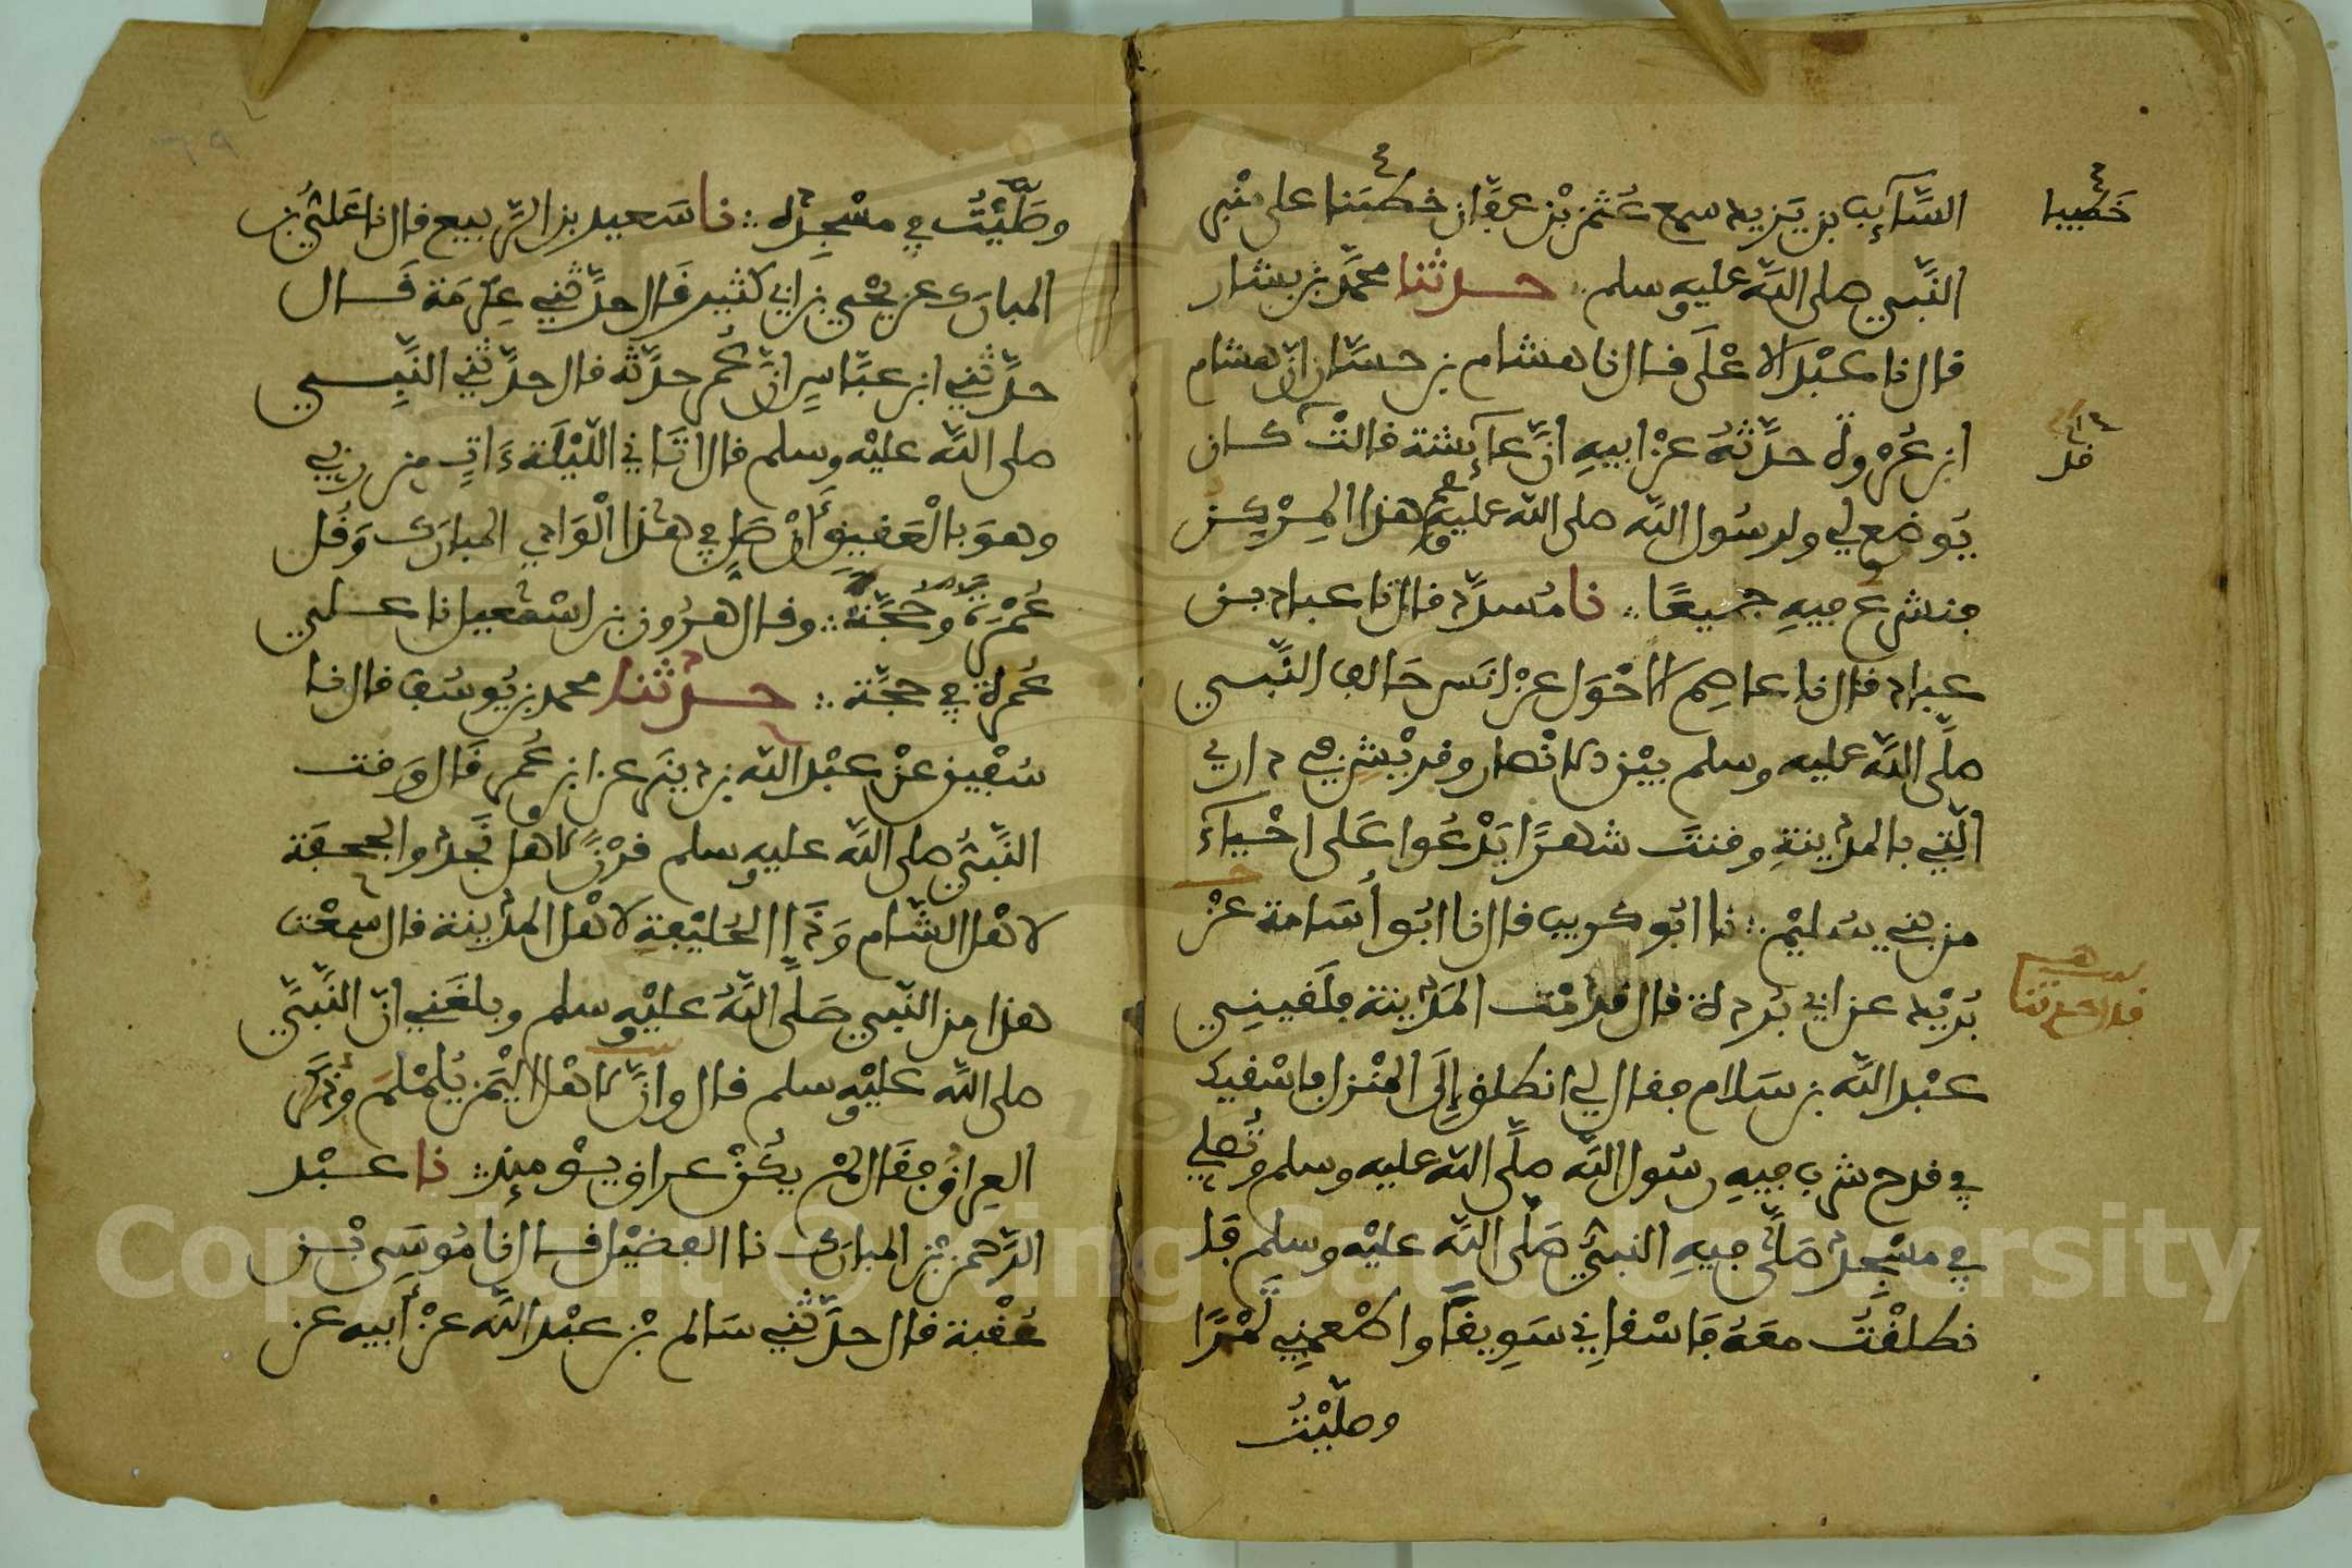 السَّآئِب بن يَزيد سمع عُثمٰن بْن عفّان خطبَنا على منْبر
خَطيبا
النَّبي صلى اللَّه عليه وسلم ∴ حدثنا محمَّد بن بشار
قال نا عبْد الاعْلَى قال نا هشام بن حسَّان انّ هشام
ابن عُرْوة حدَّثهُ عنْ ابيهِ انَّ عآئشة قالتْ كان
قد
يُوضع لي ولرسُول اللَّه صلى اللَّه عليه وسلم هذا المِرْكن
فنشرع فيهِ جميعًا ∴ نا مُسدّد قال نا عباد بن
عباد قال نا عاصِم الاحْوَل عنْ انَس حَالف النَّبي
صلَّى اللَّه عليه وسلم بيْن الانْصار وقريْش في داري
الَّتي بالمدينةِ وقنتَ شهرًا يَدْعُوا عَلى احْيَآءَ
من بني سُليْم ∴ نا ابُو كريب قال نا ابُو أُسَامة عنْ
بُرَيْد عن ابي بُردة قال قدِمْت المَدينة فلَقيني
عبْد اللَّه بن سَلام فقال لي انطلق إِلَى المنْزل فاسْقيك
في قدح شرب فيهِ رسُول اللَّه صلَّى اللَّه عليه وسلم وتُصلي
في مسْجد صَلَّى فيهِ النبيُّ صَلَّى اللَّه عليْه وسلم فَا
نطلقْتُ معَهُ فَاسْقاني سَويقًا واطْعمني تَمْرًا
وصلَّيْتُ
وصَلَّيْتُ في مسْجدِه ∴ نا سَعيد بن الرَّبيع قال نا عَليُّ بن
المبارَك عن يحْيى بن ابي كثير قَال حدَّثني عِكْرمَة قَال
حدَّثني ابن عبَّاسٍ انَّ عُمر حدَّثه قال حدَّثني النَّبِي
صلى اللَّه عليْه وسلم قال اتَانِي اللّيْلَة ءَاتٍ من ربي
وهوَ بالْعَقيقِ أَنْ صَلِّ في هٰذا الْوَادي المبارَك وَقُل
عُمْرَة وحَجَّة ∴ وقال هٰرُون بن اسْمٰعيل نا علي
عُمْرة في حجَّة ∴ حدثنا محمد بن يُوسُف قال نا
سُفْيٰن عنْ عبْد اللَّه بن دينَر عن ابن عُمر قَال وَقت
النَّبيُّ صلى اللَّه عليه وسلم قرْنًا لاهل نَجْد والجحفَة
لاهْل الشَّام وَذَا الحُليْفةِ لاهْل المدينة قال سمعْت
هذا من النَّبي صَلَّى اللَّهُ عليْه وسلم وبلغَني انّ النَّبيَّ
صلى اللَّه عليْه وسلم قال وانَّ لاهْل الْيَمَن يَلَمْلَمَ وذُكر
العِراقُ فقَال لمْ يكُنْ عراق يوْمئذ ∴ نا عبْد
الرَّحمٰن بْن المبارَك نا الفضيْل قال نا مُوسَى بْن
عُقْبة قال حدَّثني سَالم بْن عبْد اللَّه عنْ أَبيه عن
Copyright © King Saud University